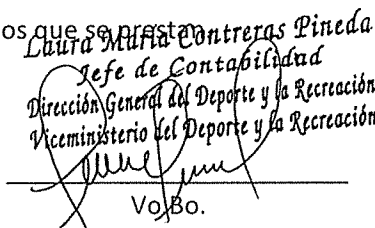 os que se prestan
Laura María Contreras Pineda
Jefe de Contabilidad
Dirección General del Deporte y la Recreación
Viceministerio del Deporte y la Recreación
Vo.Bo.